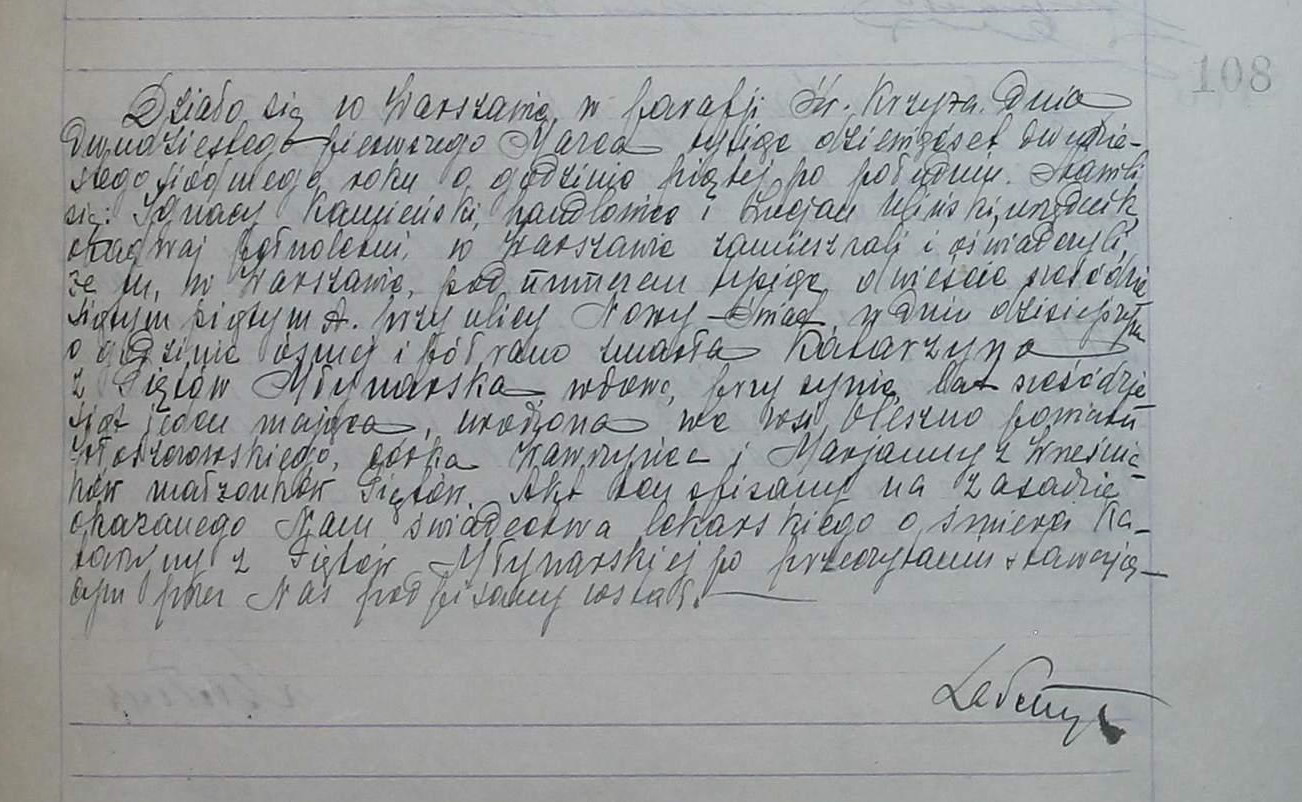 108
Działo się w Warszawie, w parafji Św. Krzyża. Dnia
dwudziestego pierwszego Marca tysiąc dziewięćset dwudzie-
stego siódmego roku o godzinie piątej po południu. Stawili
się: Ignacy Kamieński, handlowiec i Lucjan urzędnik
obadwaj pełnoletni, w Warszawie zamieszkali i oświadczyli,
że tu, w Warszawie, pod numerem tysiąc dwieście sześćdzie
siątym piątym A. przy ulicy Nowy-Świat, w dniu dzisiejszym
o godzinie ósmej i pół rano zmarła Katarzyna
z Ziętów Młynarska wdowa, przy synie, lat sześćdzie
siąt jeden mająca, urodzona we wsi Oleszno powiatu
Włoszczowskiego, córka Wawrzyńca i Marjanny z
małżonków Ziętów. Akt ten spisany na zasadzie
okazanego Nam świadectwa lekarskiego o śmierci Ka-
tarzyny z Ziętów Młynarskiej po przeczytaniu stawają-
cym przez Nas podpisany został.